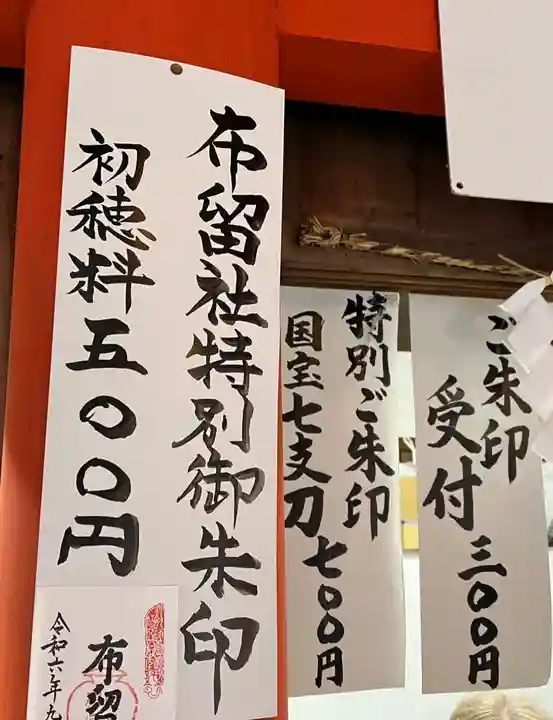 布留社特別御朱印
初穂料五〇〇円
令和六年九
布留
特別ご朱印
国宝七支刀 七〇〇円
ご朱印
受付 三〇〇円